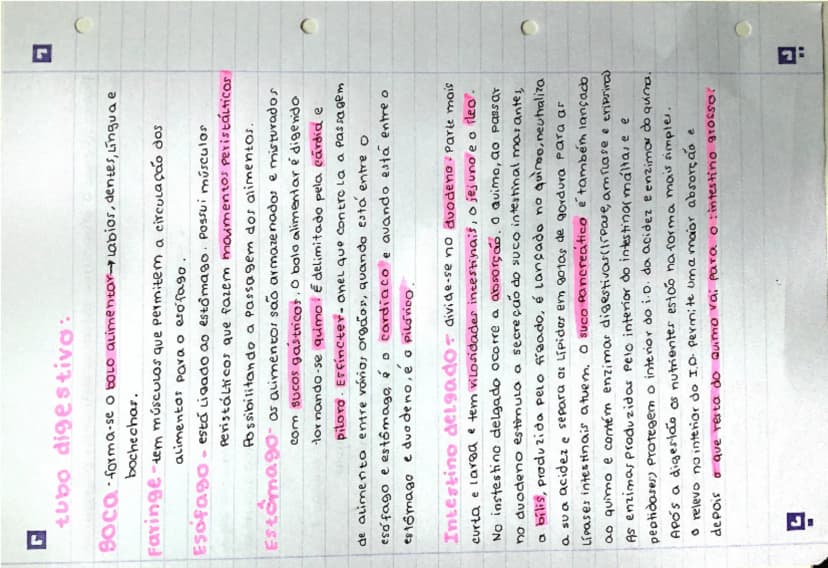 tubo digestivo:
Boca - forma-se o bolo alimentar → lábios, dentes, língua e
bochechas.
Faringe - tem músculos que permitem a circulação dos
alimentos para o esófago.
Esófago - está ligado ao estômago. Possui músculos
peristálticos que fazem movimentos peristálticos
possibilitando a passagem dos alimentos.
Estômago - os alimentos são armazenados e misturados
com sucos gástricos. O bolo alimentar é digerido
tornando-se quimo. É delimitado pela cárdia e
piloro. Esfíncter - anel que controla a passagem
de alimento entre vários orgãos, quando está entre o
esófago e estômago, é o cardíaco e quando está entre o
estômago e duodeno, é o pilórico.
Intestino delgado - divide-se no duodeno: Parte mais
curta e larga e tem vilosidades intestinais, o jejuno e o íleo.
No instestino delgado ocorre a absorção. O quimo, ao passar
no duodeno estimula a secreção do suco intestinal mas antes,
a bílis, produzida pelo fígado, é lançada no quimo, neutraliza
a sua acidez e separa os lípidos em gotas de gordura para as
lípases intestinais atuem. O suco pancreático é também lançado
ao quimo e contém enzimas digestivas (lípase, amílase e
As enzimas produzidas pelo interior do intestino (maltase e
peptidases) Protegem o interior do i.D. da acidez e enzimas do quimo.
Após a digestão os nutrientes estão na forma mais simples.
O relevo no interior do I.D. Permite uma maior absorção e
depois o que resta do quimo vai para o: intestino grosso: